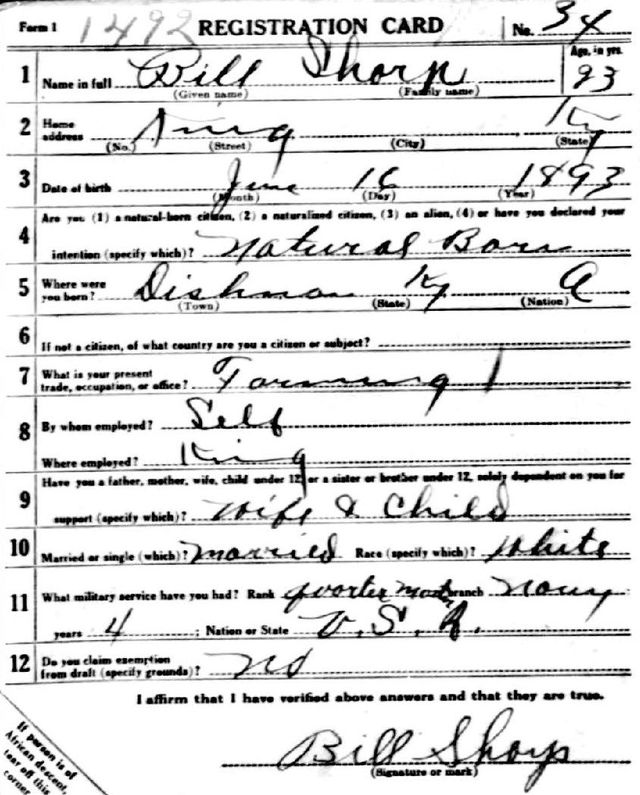 Form 1 1492 REGISTRATION CARD No. 34
1 Name in full Bill Sharp Age, in yrs. 23
(Given name) (Family name)
2 Home address King Ky
(No.) (Street) (City) (State)
3 Date of birth June 16 1893
(Month) (Day) (Year)
Are you (1) a natural-born citizen, (2) a naturalized citizen, (3) an alien, (4) or have you declared your
4 intention (specify which)? Natural Born
5 Where were you born? Dishman Ky A
(Town) (State) (Nation)
6 If not a citizen, of what country are you a citizen or subject?
7 What is your present trade, occupation, or office? Farming 1
8 By whom employed? Self
Where employed? King
Have you a father, mother, wife, child under 12, or a sister or brother under 12, solely dependent on you for
9 support (specify which)? Wife & Child
10 Married or single (which)? Married Race (specify which)? White
11 What military service have you had? Rank quarter mast branch Navy
years 4 ; Nation or State U. S. A.
12 Do you claim exemption from draft (specify grounds)? No
I affirm that I have verified above answers and that they are true.
Bill Sharp
(Signature or mark)
If person is of
African descent,
tear off this
corner